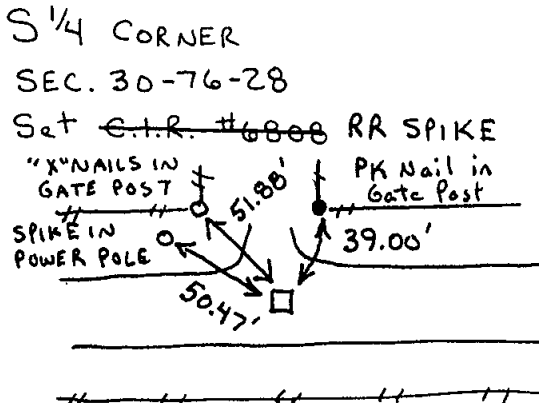 S 1/4 CORNER
SEC. 30-76-28
Set C.I.R. #6808 RR SPIKE
"X" NAILS IN
GATE POST
51.88'
PK Nail in
Gate Post
SPIKE IN
POWER POLE
39.00'
50.47'